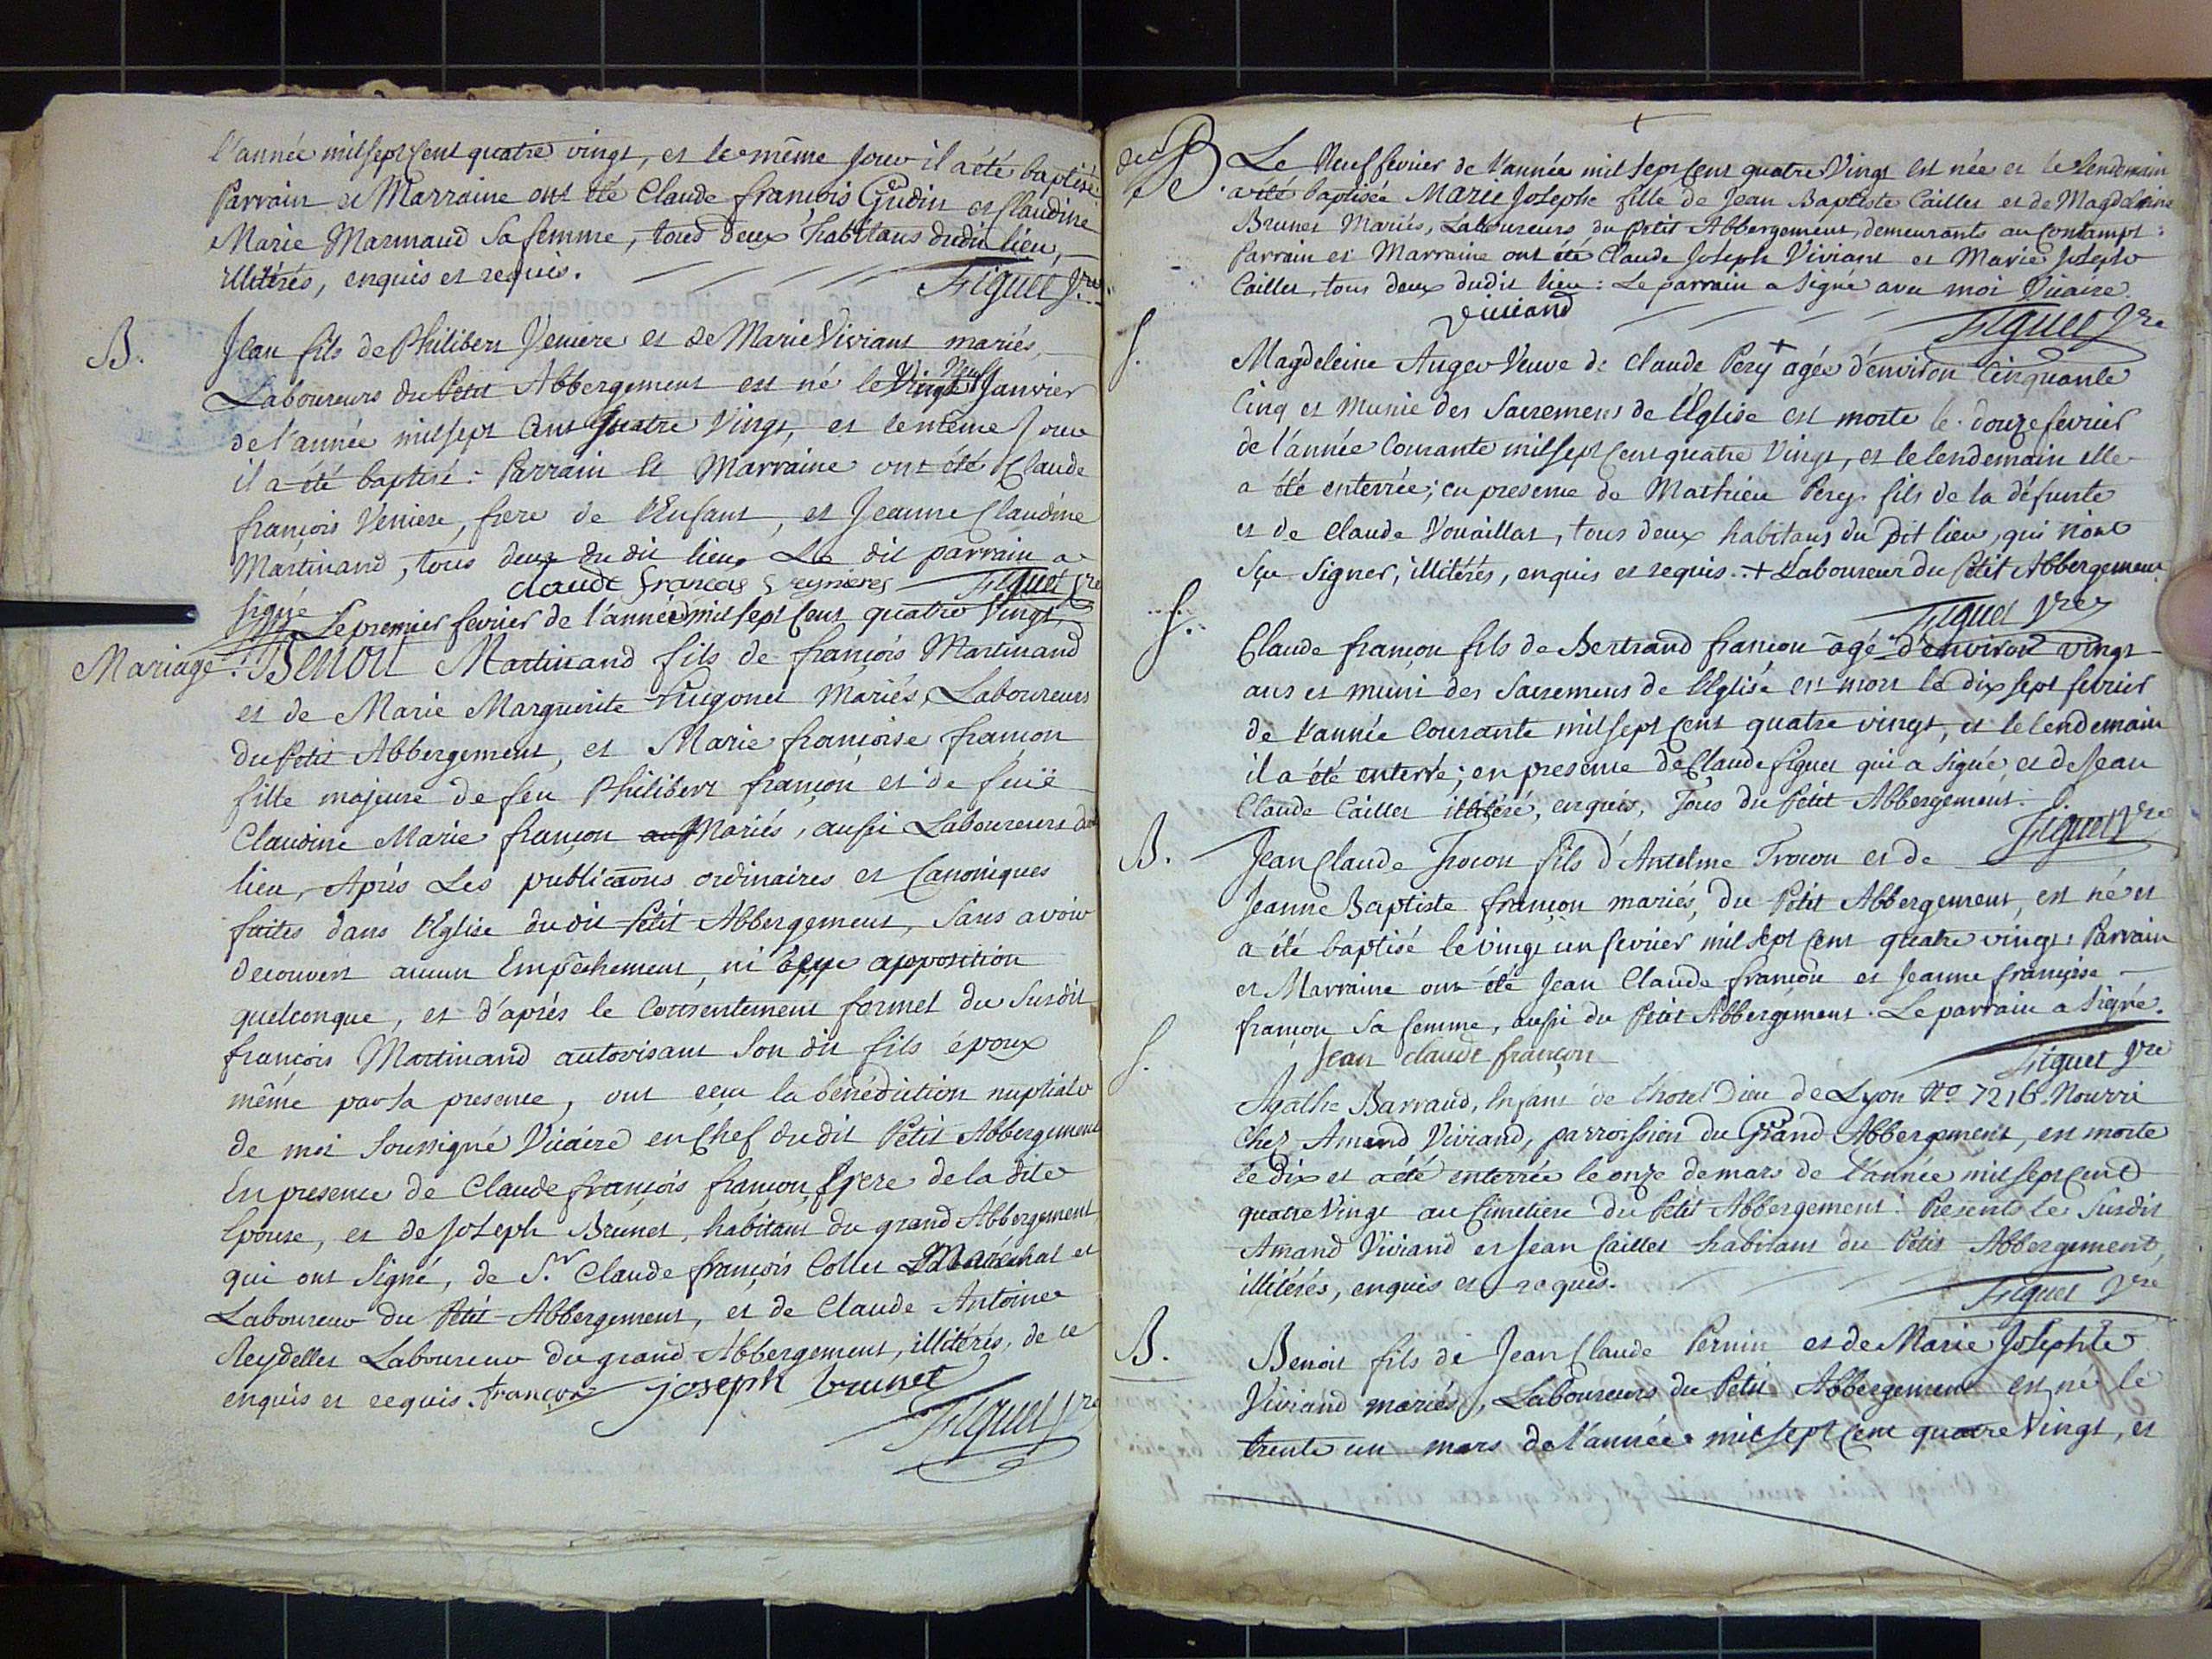 l'année mil sept cent quatre vingt, et le même jour il a été baptisé:
Parrain et Marraine ont été Claude françois Gudin et Claudine
Marie Marmand sa femme, tous deux habitans dudit lieu,
illitérés, enquis et requis. Figuet Vre
B. Jean fils de Philibert Veniere et de Marie Viviant mariés,
Laboureurs du Petit Abbergement est né le Vingt neuf Janvier
de l'année mil sept Cent Quatre Vingt, et le même Jour
il a été baptisé: Parrain et Marraine ont été Claude
françois Veniere, frere de l'Enfant, et Jeanne Claudine
Martinand, tous deux du dit lieu, Le dit parrain a
signé claude francois Figuet Vre
Le premier fevrier de l'année mil sept cent quatre Vingt,
Mariage: Benoit Martinand fils de françois Martinand
et de Marie Marguerite hugonet Mariés, Laboureurs
du Petit Abbergement, et Marie françoise françon
fille majeure de feu Philibert françon et de feuë
Claudine Marie françon Mariés, aussi Laboureurs dudit
lieu, Après Les publicaons ordinaires et Canoniques
faites dans l'Eglise du dit Petit Abbergement, sans avoir
decouvert aucun Empêchement, ni opposition
quelconque, et d'après le Consentement formel du Susdit
françois Martinand autorisant Son dit fils époux
même par sa presence, ont reçu la bénédiction nuptiale
de moi Soussigné Vicaire en Chef du dit Petit Abbergement
En presence de Claude françois françon frere de la dite
Epouse, et de Joseph Brunet, habitans du grand Abbergement
qui ont signé, de Sr Claude françois Collet Maréchal et
Laboureur du Petit Abbergement, et de Claude Antoine
Reydellet Laboureur du grand Abbergement, illitérés, de ce
enquis et requis. françon joseph brunet
Figuet Vre
B. Le Neuf fevrier de l'année mil sept cent quatre Vingt est née et le lendemain
a été baptisée Marie Josephe fille de Jean Baptiste Caillet et de Magdeleine
Brunet Mariés, Laboureurs du Petit Abbergement, demeurants au Contampt:
Parrain et Marraine ont été Claude Joseph Viviant et Marie Josephe
Caillet, tous deux dudit lieu: Le parrain a signé avec moi Vicaire.
viviand Figuet Vre
S. Magdeleine Auger Veuve de Claude Perý + agée d'environ Cinquante
Cinq et Munie des Sacremens de l'Eglise est morte le douze fevrier
de l'année Courante mil sept cent quatre Vingt, et le lendemain elle
a été enterrée; en presence de Mathieu Perey fils de la défunte
et de Claude Vouaillat, tous deux habitans du dit lieu, qui n'ont
sçu Signer, illitérés, enquis et requis. + Laboureur du Petit Abbergement
Figuet Vre
S. Claude françon fils de Bertrand françon âgé d'environ vingt
ans et muni des Sacremens de l'Eglise est mort le dix sept fevrier
de l'année Courante mil sept cent quatre vingt, et le lendemain
il a été enterré; en presence de Claude figuet qui a signé, et de Jean
Claude Caillet illitéré, enquis, Tous du Petit Abbergement.
Figuet Vre
B. Jean Claude Trocon fils d'Antelme Trocon et de
Jeanne Baptiste françon mariés, du Petit Abbergement, est né et
a été baptisé le vingt un fevrier mil sept cent quatre vingt: Parrain
et Marraine ont été Jean Claude françon et Jeanne françoise
françon sa femme, aussi du Petit Abbergement. Le parrain a signé.
Jean claude françon Figuet Vre
S. Agathe Barraud, Enfant de l'hotel Dieu de Lyon No 7216 Nourri
Chez Amand Viviand, parroissien du Grand Abbergement, est morte
le dix et a été enterrée le onze de mars de l'année mil sept cent
quatre Vingt au Cimetiere du Petit Abbergement: Presents le Susdit
Amand Viviand et Jean Caillet habitant du Petit Abbergement,
illitérés, enquis et requis.
Figuet Vre
B. Benoit fils de Jean Claude Pernin et de Marie Josephte
Viviand mariés, Laboureurs du Petit Abbergement est né le
trente un mars de l'année mil sept cent quatre Vingt, et